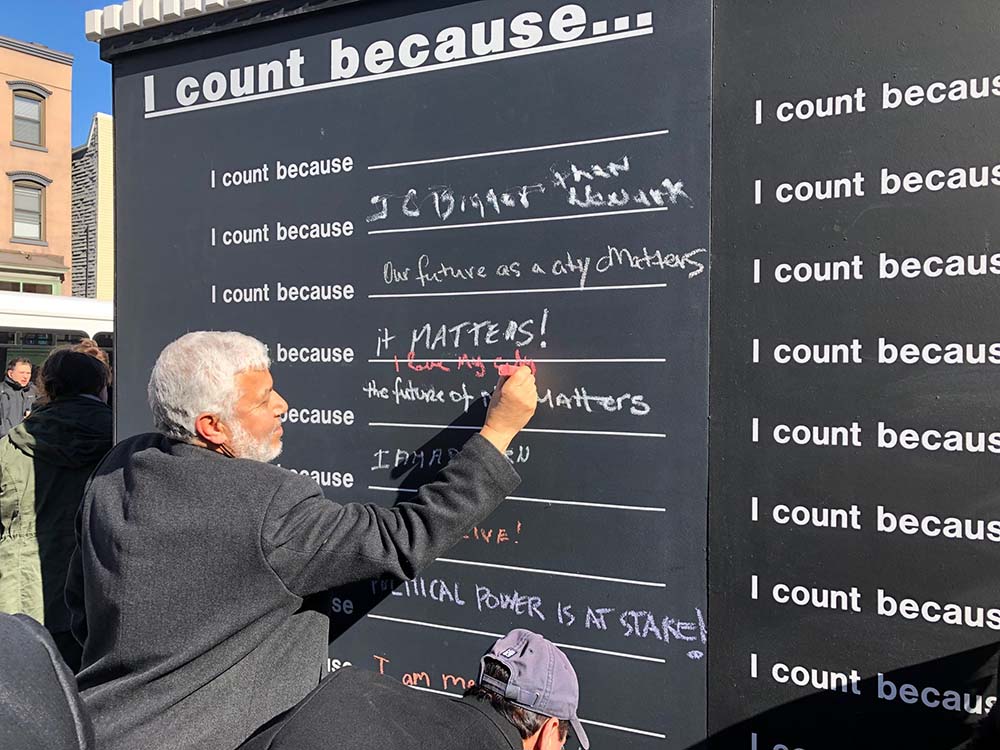 I count because...
I count because
I count because than
I C Bigger Newark
I count because Our future as a city Matters
because it MATTERS!
I love My city
because the future of Matters
cause I AM A
LIVE!
se POLITICAL POWER IS AT STAKE!
se I am me
I count becaus
I count becaus
I count becaus
I count becaus
I count becaus
I count becaus
I count becaus
I count becaus
I